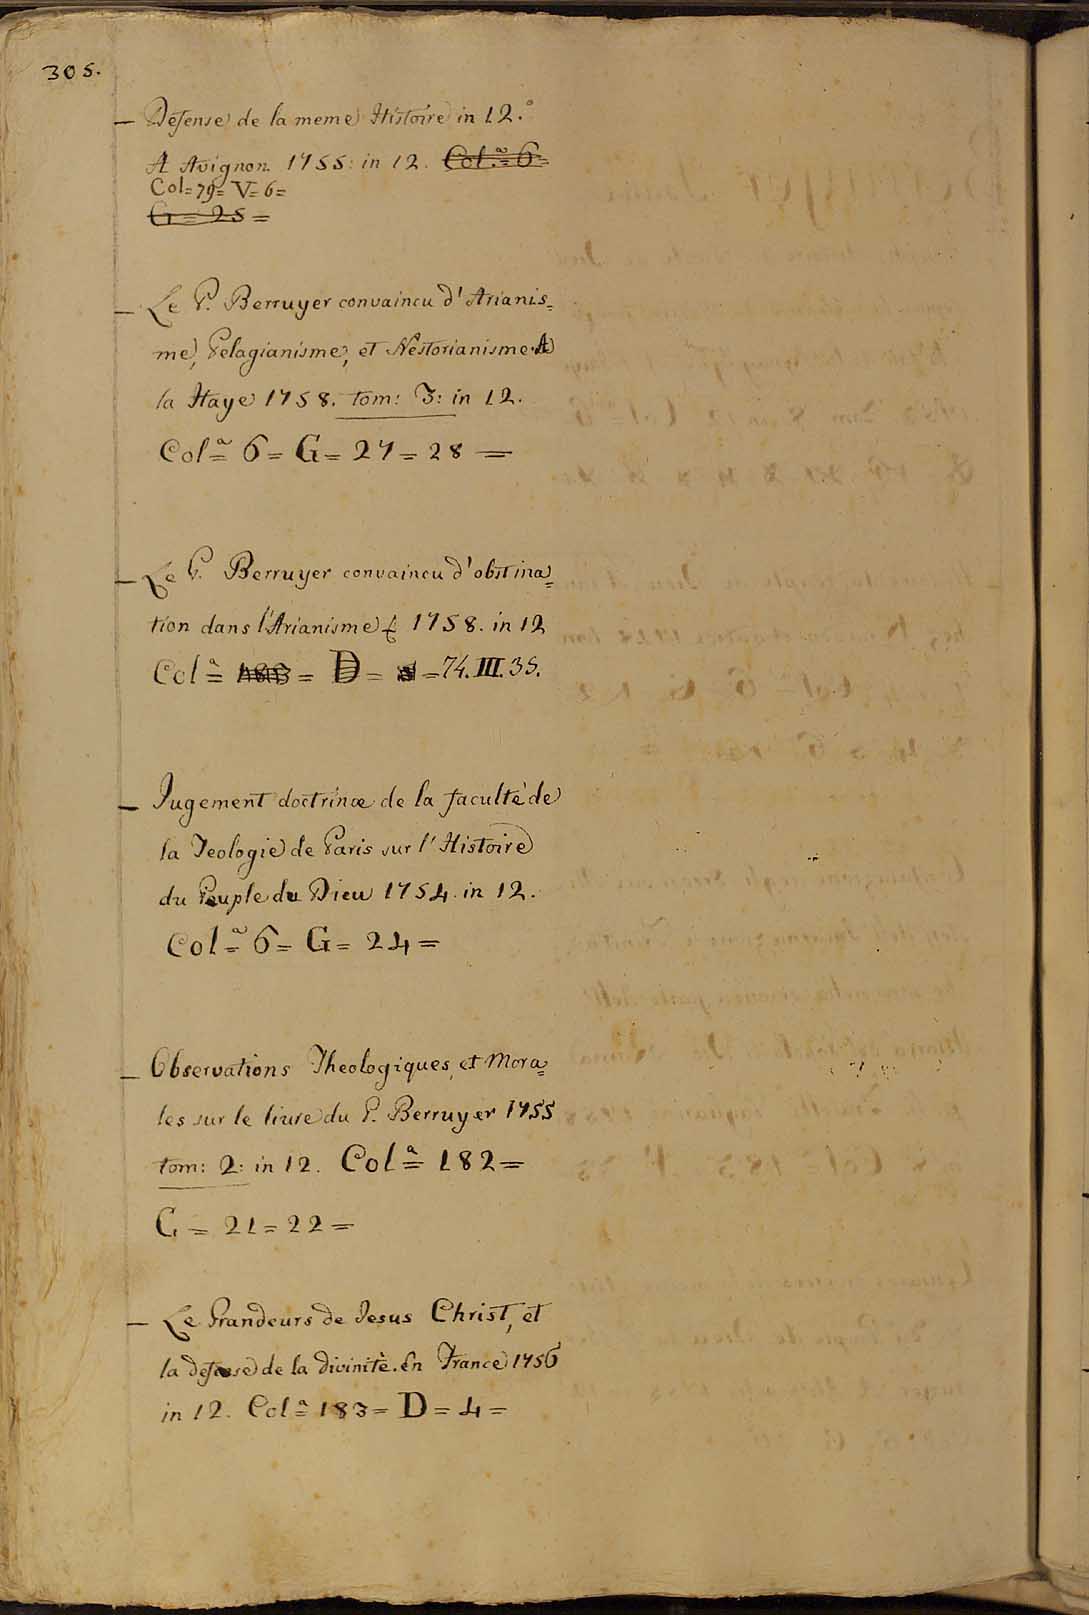 305.
— Defense de la meme Histoire in 12.°
A Avignon. 1755: in 12. Col.ª= 6=
Col=79= V=6=
G=25=
— Le P. Berruyer convaincu d'Arianis=
me, Pelagianisme, et Nestorianisme. A
la Haye 1758. tom: 3: in 12.
Colª= 6= G= 27= 28=
— Le P. Berruyer convaincu d'obstina=
tion dans l'Arianisme 1758. in 12
Colª= = D= =74.III.35.
— Jugement doctrinæ de la faculté de
la Teologie de Paris sur l'Histoire
du Peuple de Dieu 1754. in 12.
Colª= 6= G= 24=
— Observations Theologiques, et Mora=
les sur le livre du P. Berruyer 1755
tom: 2: in 12. Colª= 182=
G= 21= 22=
— Le Grandeurs de Jesus Christ, et
la defense de la divinitè. En France 1756
in 12. Colª= 183= D= 4=